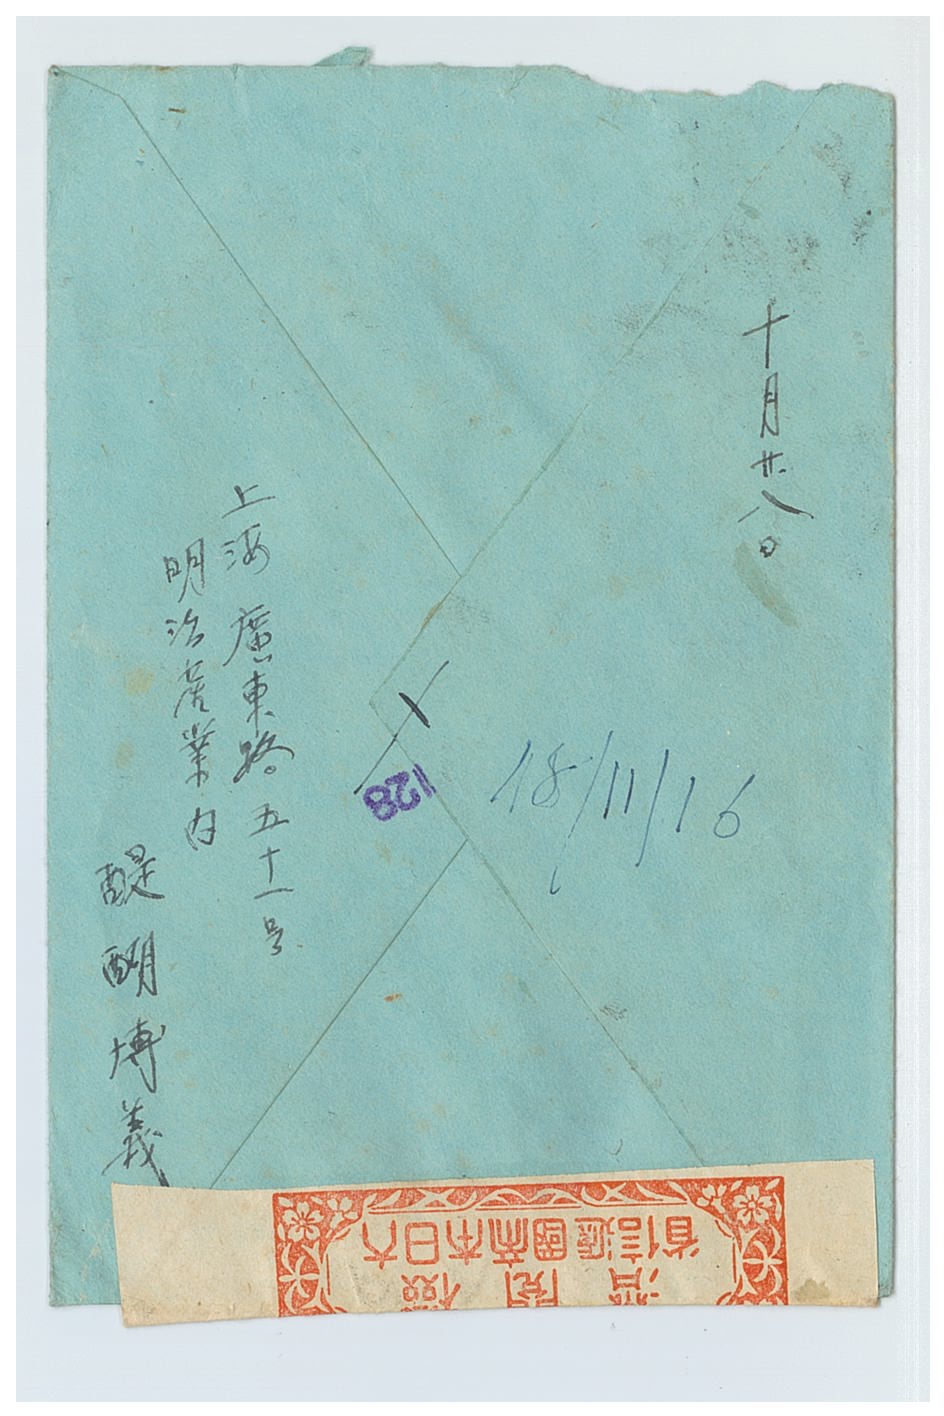 十月廿八日
上海廣東路五十一号
明治産業内
醍醐博義
128
18/11/16
大日本帝國逓信省
検閲濟